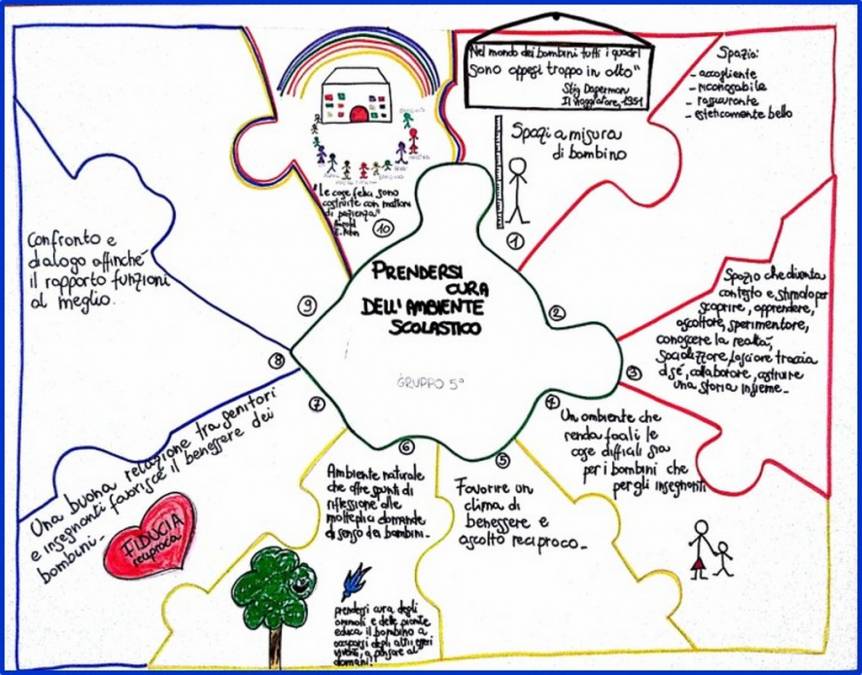 PRENDERSI
CURA
DELL'AMBIENTE
SCOLASTICO
GRUPPO 5°
"Nel mondo dei bambini tutti i quadri
sono appesi troppo in alto"
Stig Dagerman
Il viaggiatore, 1951
Spazi a misura
di bambino
1
Spazio:
- accogliente
- riconoscibile
- rassicurante
- esteticamente bello
2
Spazio che diventa
contesto e stimolo per
scoprire, apprendere,
ascoltare, sperimentare,
conoscere la realtà,
socializzare, lasciare traccia
di sé, collaborare, costruire
una storia insieme.
3
4
Un ambiente che
renda facili le
cose difficili sia
per i bambini che
per gli insegnanti
5
Favorire un
clima di
benessere e
ascolto reciproco.
6
Ambiente naturale
che offre spunti di
riflessione alle
molteplici domande
di senso dei bambini.
prendersi cura degli
animali e delle piante
educa il bambino a
occuparsi degli altri esseri
viventi, a pensare al
domani!!
7
Una buona relazione tra genitori
e insegnanti favorisce il benessere dei
bambini.
FIDUCIA
reciproca
8
Confronto e
dialogo affinché
il rapporto funzioni
al meglio.
9
"Le cose felici sono
costruite con mattoni
di pazienza"
Harold
10